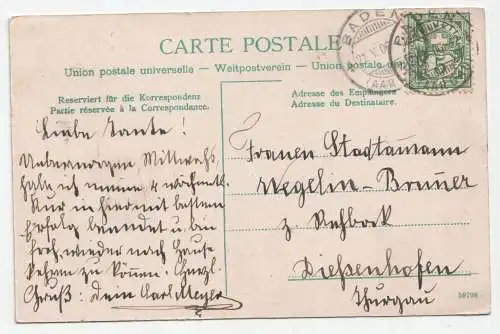 CARTE POSTALE
Union postale universelle – Weltpostverein – Union postale
Reserviert für die Korrespondenz
Partie réservée à la Correspondance.
Adresse des Empfängers
Adresse du Destinataire.
BADEN
Liebe Tante!
Übermorgen, Mittwochs
habe ich meine 4 wöchentl.
Kur in hier mit bestem
Erfolg beendet u. bin
froh, wieder nach Hause
kehren zu können. Herzl.
Gruß: Dein Carl Meyer
Frauen Stadtammann
Wegelin-Brunner
z. Rehbock
Dießenhofen
Thurgau
59798